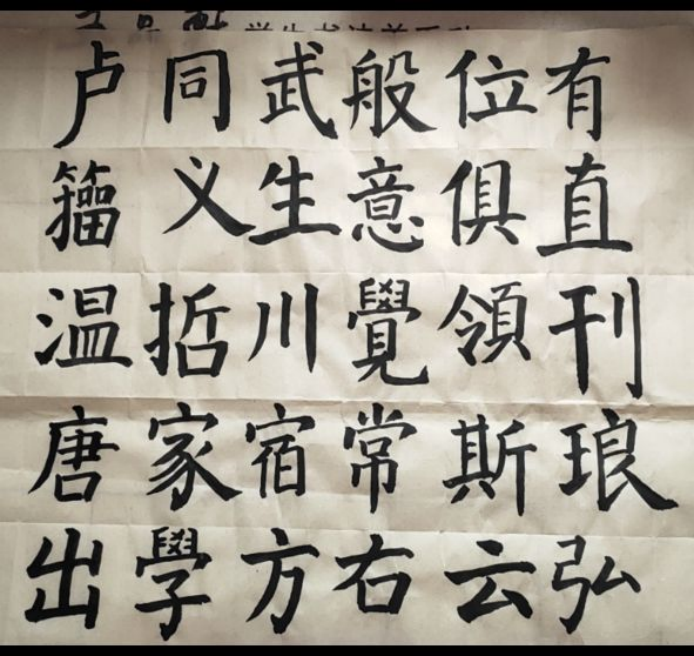 卢同武般位有
籀义生意俱直
温川覺領刊
唐家宿常斯琅
出學方右云弘